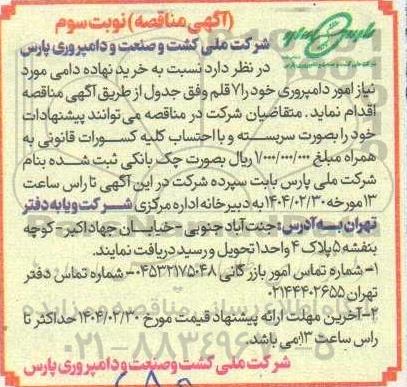 (آگهی مناقصه) نوبت سوم
شرکت ملی کشت و صنعت و دامپروری پارس
در نظر دارد نسبت به خرید نهاده دامی مورد
نیاز امور دامپروری خود را ۷ قلم وفق جدول از طریق آگهی مناقصه
اقدام نماید. متقاضیان شرکت در مناقصه می توانند پیشنهادات
خود را بصورت سربسته و با احتساب کلیه کسورات قانونی به
همراه مبلغ ۱/۰۰۰/۰۰۰/۰۰۰ ریال بصورت چک بانکی ثبت شده بنام
شرکت ملی پارس بابت سپرده شرکت در این آگهی تا راس ساعت
۱۳ مورخه ۱۴۰۴/۰۲/۳۰ به دبیرخانه اداره مرکزی شرکت ویا به دفتر
تهران به آدرس: جنت آباد جنوبی - خیابان جهاد اکبر - کوچه
بنفشه ۵ پلاک ۴ واحد ۱ تحویل و رسید دریافت نمایند.
۱- شماره تماس امور بازرگانی ۰۴۵۳۲۱۷۵۰۴۸ - شماره تماس دفتر
تهران ۰۲۱۴۴۴۰۲۶۵۵
۲- آخرین مهلت ارائه پیشنهاد قیمت مورخ ۱۴۰۴/۰۲/۳۰ حداکثر تا
راس ساعت ۱۳ می باشد.
۰۲۱-۸۸۳۴۹۶۷۰-۵
شرکت ملی کشت وصنعت و دامپروری پارس